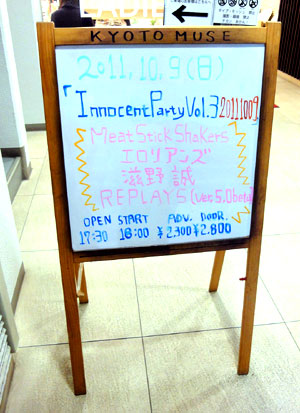 KYOTO MUSE
2011.10.9(日)
「InnocentParty Vol.3 20111009
MeatStickShakers
エロリアンズ
滋野 誠
REPLAYS (ver 5.0beta)
OPEN START ADV. DOOR.
17:30 18:00 ¥2.300 ¥2.800